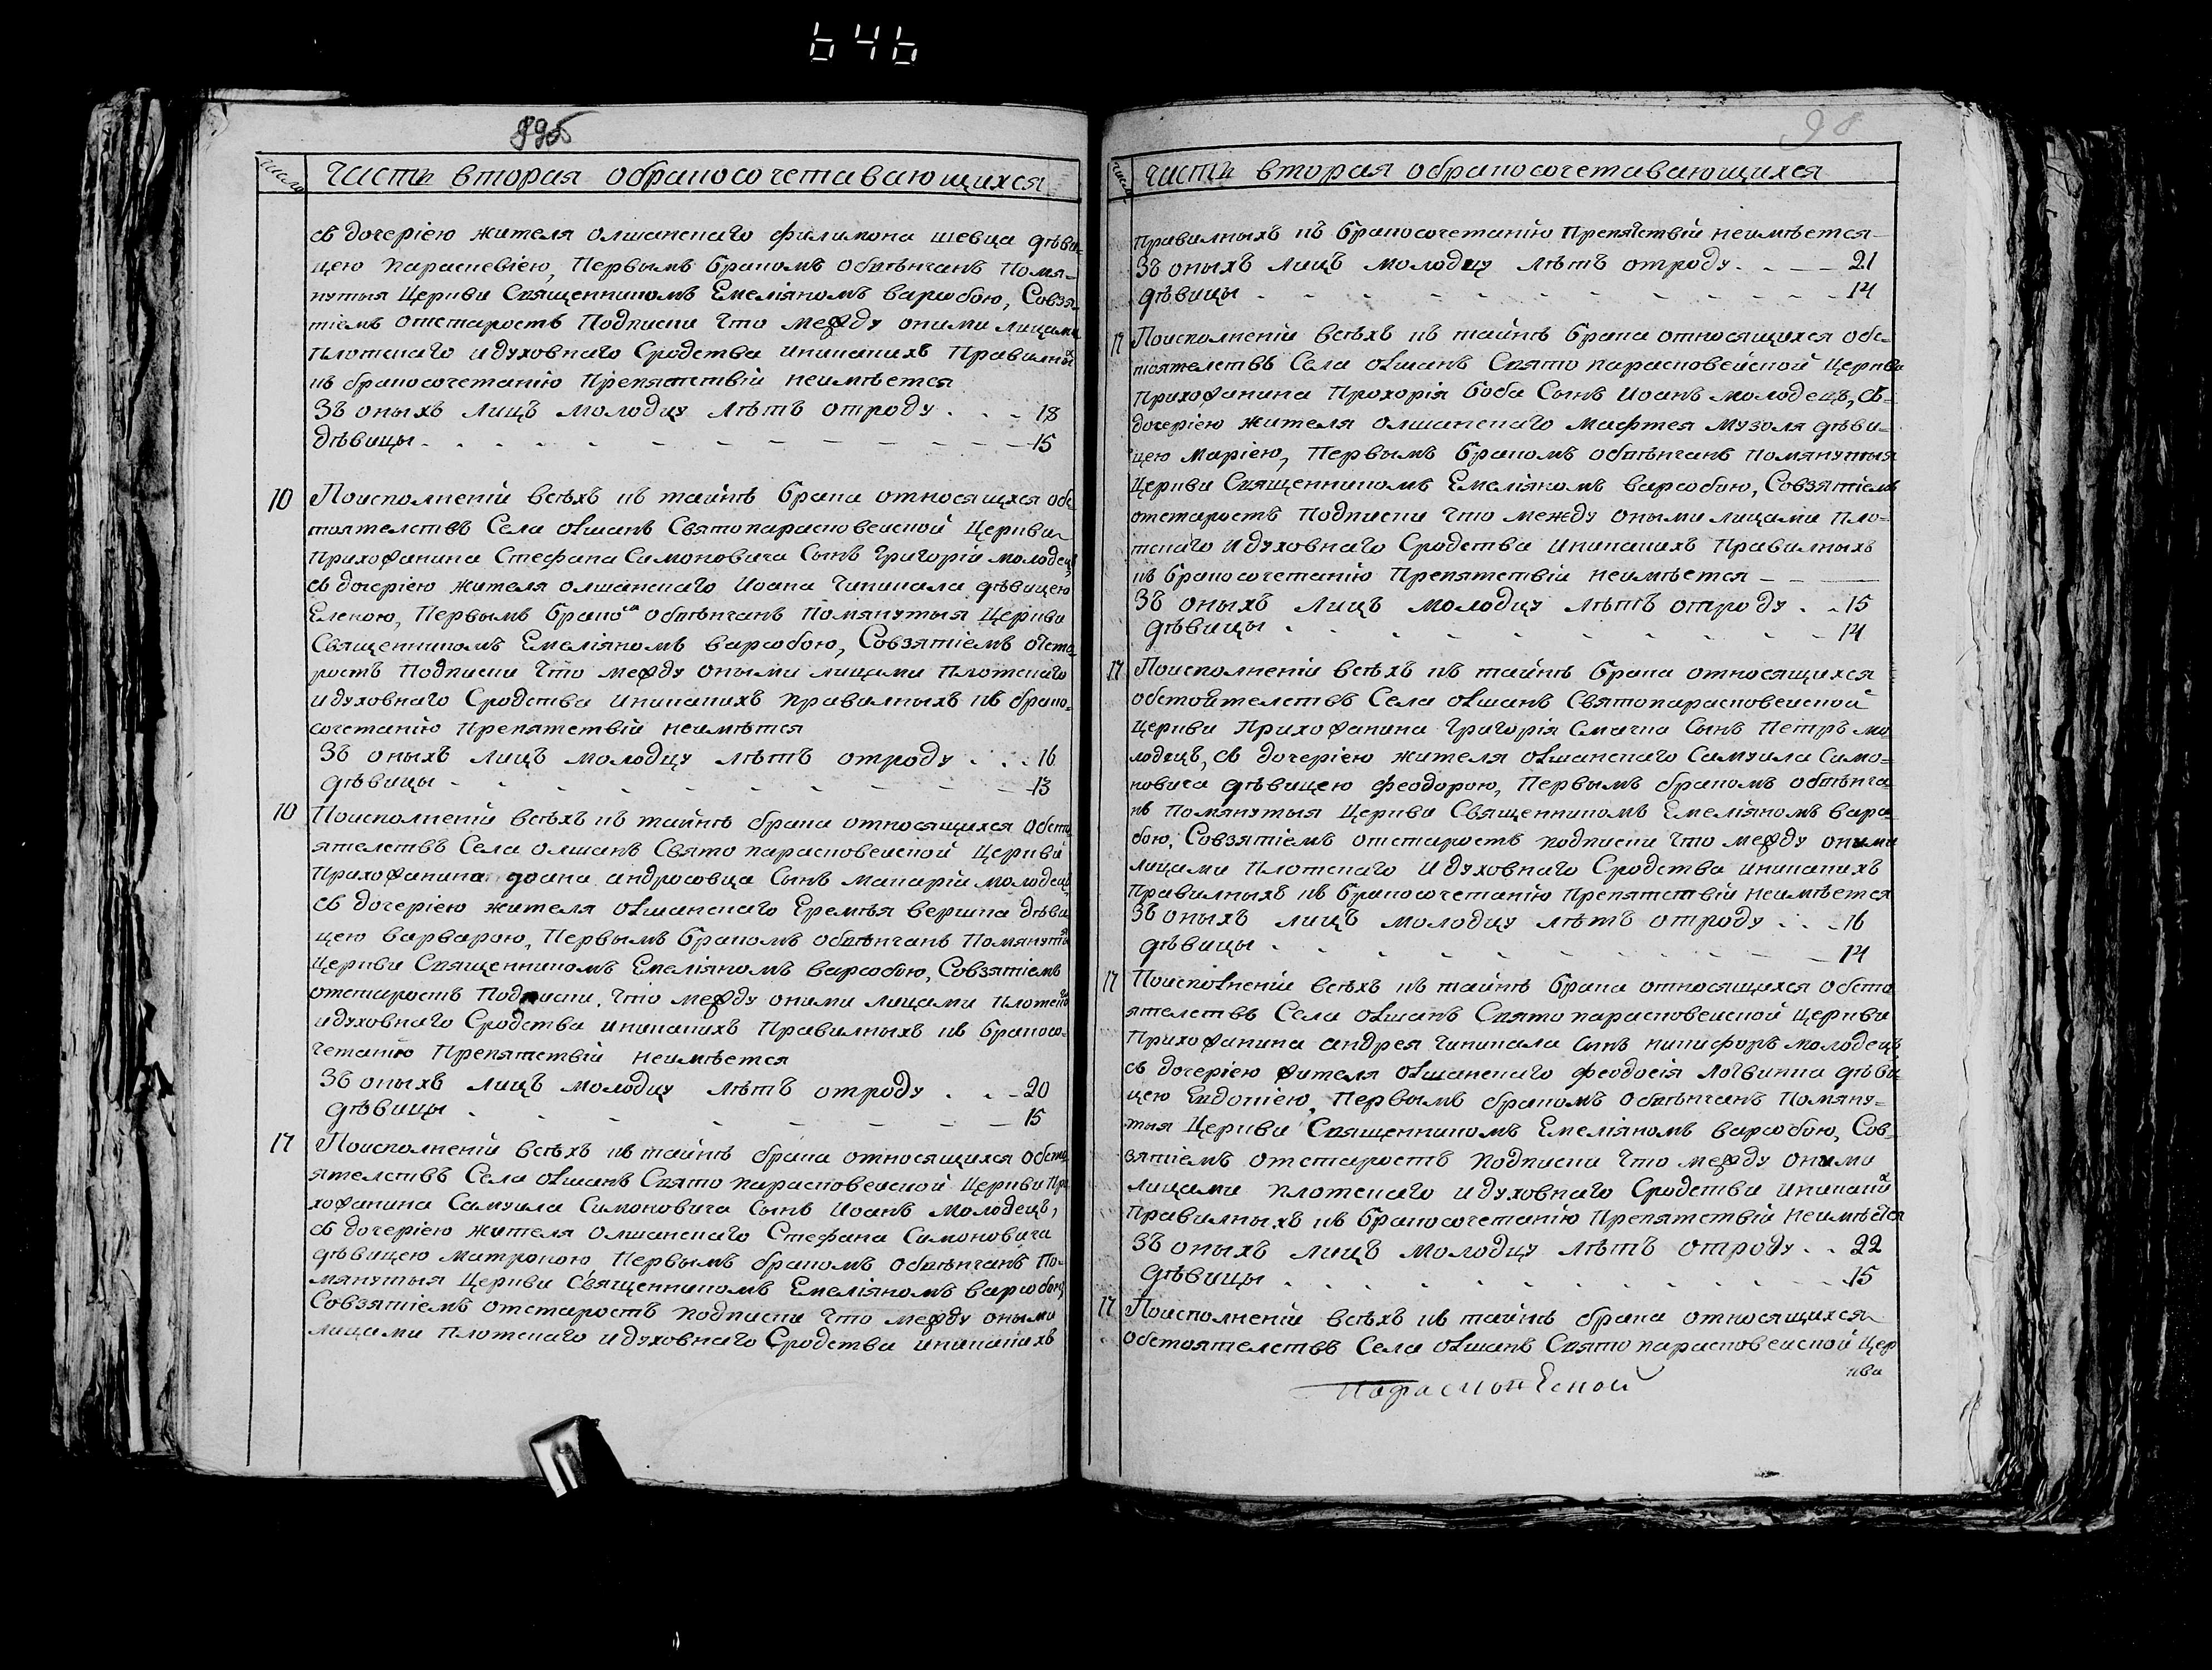 646
895
число Часть вторая обракосочетавающихся
съ дочеріею жителя олшанскаго филимона шевца дѣви-
цею параскевіею, Первымъ бракомъ обвѣнчанъ Помя-
нутыя Церкви Священникомъ Емеліяномъ варообою, Совзя-
тіемъ отстаростъ Подписки что между оними лицами
плотскаго идуховнаго Сродства иникакихъ Правилныхъ
къ бракосочетанію Препятствій неимѣется
Зъ оныхъ лицъ молодцу лѣтъ отроду . . - 18
дѣвицы - - - 15
10 Поисполненіи всѣхъ къ тайнѣ брака относящихся обс-
тоятелствъ Села олшанъ Святопарасковейской Церкви
прихожанина Стефана Симоновича Сынъ григорій молодецъ,
съ дочеріею жителя олшанскаго Иоана чипикала дѣвицею
Еленою, Первымъ бракомъ обвѣнчанъ помянутыя Церкви
Священникомъ Емеліяномъ варообою, Совзятіемъ отста-
ростъ Подписки что между оными лицами плотскаго
идуховнаго Сродства иникакихъ правилныхъ къ брако-
сочетанію Препятствій неимѣтся
Зъ оныхъ лицъ молодцу лѣтъ отроду . . . 16
дѣвицы - - - 13
10 Поисполненіи всѣхъ къ тайнѣ брака относящихся обсто-
ятелствъ Села олшанъ Свято парасковейской Церкви
Прихожанина иоана андросовца Сынъ макарій молодецъ,
съ дочеріею жителя олшанскаго Еремѣя вершка дѣви-
цею варварою, Первымъ бракомъ обвѣнчанъ Помянутыя
Церкви Священникомъ Емеліяномъ варообою, Совзятіемъ
отстаростъ Подписки, что между оними лицами плотскаго
идуховнаго Сродства иникакихъ Правилныхъ къ бракосо-
четанію Препятствій неимѣется
Зъ оныхъ лицъ молодцу лѣтъ отроду . . - 20
дѣвицы - - - 15
17 Поисполненіи всѣхъ къ тайнѣ брака относящихся обсто-
ятелствъ Села олшанъ Свято парасковейской Церкви При-
хожанина Самуила Симоновича Сынъ Иоанъ молодецъ,
съ дочеріею жителя Олшанскаго Стефана Симоновича
дѣвицею матроною, Первымъ бракомъ обвѣнчанъ По-
мянутыя Церкви Священникомъ Емеліяномъ варообою,
Совзятіемъ отстаростъ подписки что между оными
лицами плотскаго идуховнаго Сродства иникакихъ
98
число часть вторая обракосочетавающихся
правилныхъ къ бракосочетанію Препятствій неимѣется
Зъ оныхъ лицъ молодцу лѣтъ отроду . . - 21
дѣвицы - - - 14
17 Поисполненіи всѣхъ къ тайнѣ брака относящихся обс-
тоятелствъ Села олшанъ Свято парасковейской Церкви
прихожанина Прохорія боба Сынъ Иоанъ молодецъ, съ-
дочеріею жителя олшанскаго матфея музоля дѣви-
цею маріею, Первымъ бракомъ обвѣнчанъ помянутыя
Церкви Священникомъ Емеліяномъ варообою, Совзятіемъ
отстаростъ Подписки что между оными лицами пло-
тскаго идуховнаго Сродства иникакихъ Правилныхъ
къ бракосочетанію Препятствій неимѣется - -
Зъ оныхъ лицъ молодцу лѣтъ отроду . . 15
дѣвицы - - - 14
17 Поисполненіи всѣхъ къ тайнѣ брака относящихся
обстоятелствъ Села олшанъ Святопарасковейской
церкви Прихожанина григорія Смачка Сынъ Петръ мо-
лодецъ, съ дочеріею жителя олшанскаго Самуила Симо-
новича дѣвицею феодорою, Первымъ бракомъ обвѣнча-
нъ Помянутыя Церкви Священникомъ Емеліяномъ варо-
бою, Совзятіемъ отстаростъ подписки что между оними
лицами плотскаго идуховнаго Сродства иникакихъ
правилныхъ къ бракосочетанію препятствій неимѣется
Зъ оныхъ лицъ молодцу лѣтъ отроду . . . 16
дѣвицы - - - 14
17 Поисполненіи всѣхъ къ тайнѣ брака относящихся обсто-
ятелствъ Села олшанъ Свято парасковейской церкви
Прихожанина андрея чипикала сынъ никифоръ молодецъ
съ дочеріею жителя олшанскаго феодосія логвинка дѣви-
цею Евдокіею, Первымъ бракомъ обвѣнчанъ Помяну-
тыя Церкви Священникомъ Емеліяномъ варообою, Сов-
зятіемъ отстаростъ подписки что между оними
лицами плотскаго идуховнаго Сродства иникакихъ
Правилныхъ къ бракосочетанію Препятствій неимѣется
Зъ оныхъ лицъ молодцу лѣтъ отроду . . 22
дѣвицы - - - 15
17 Поисполненіи всѣхъ къ тайнѣ брака относящихся
обстоятелствъ Села олшанъ Свято парасковейской Цер
кви